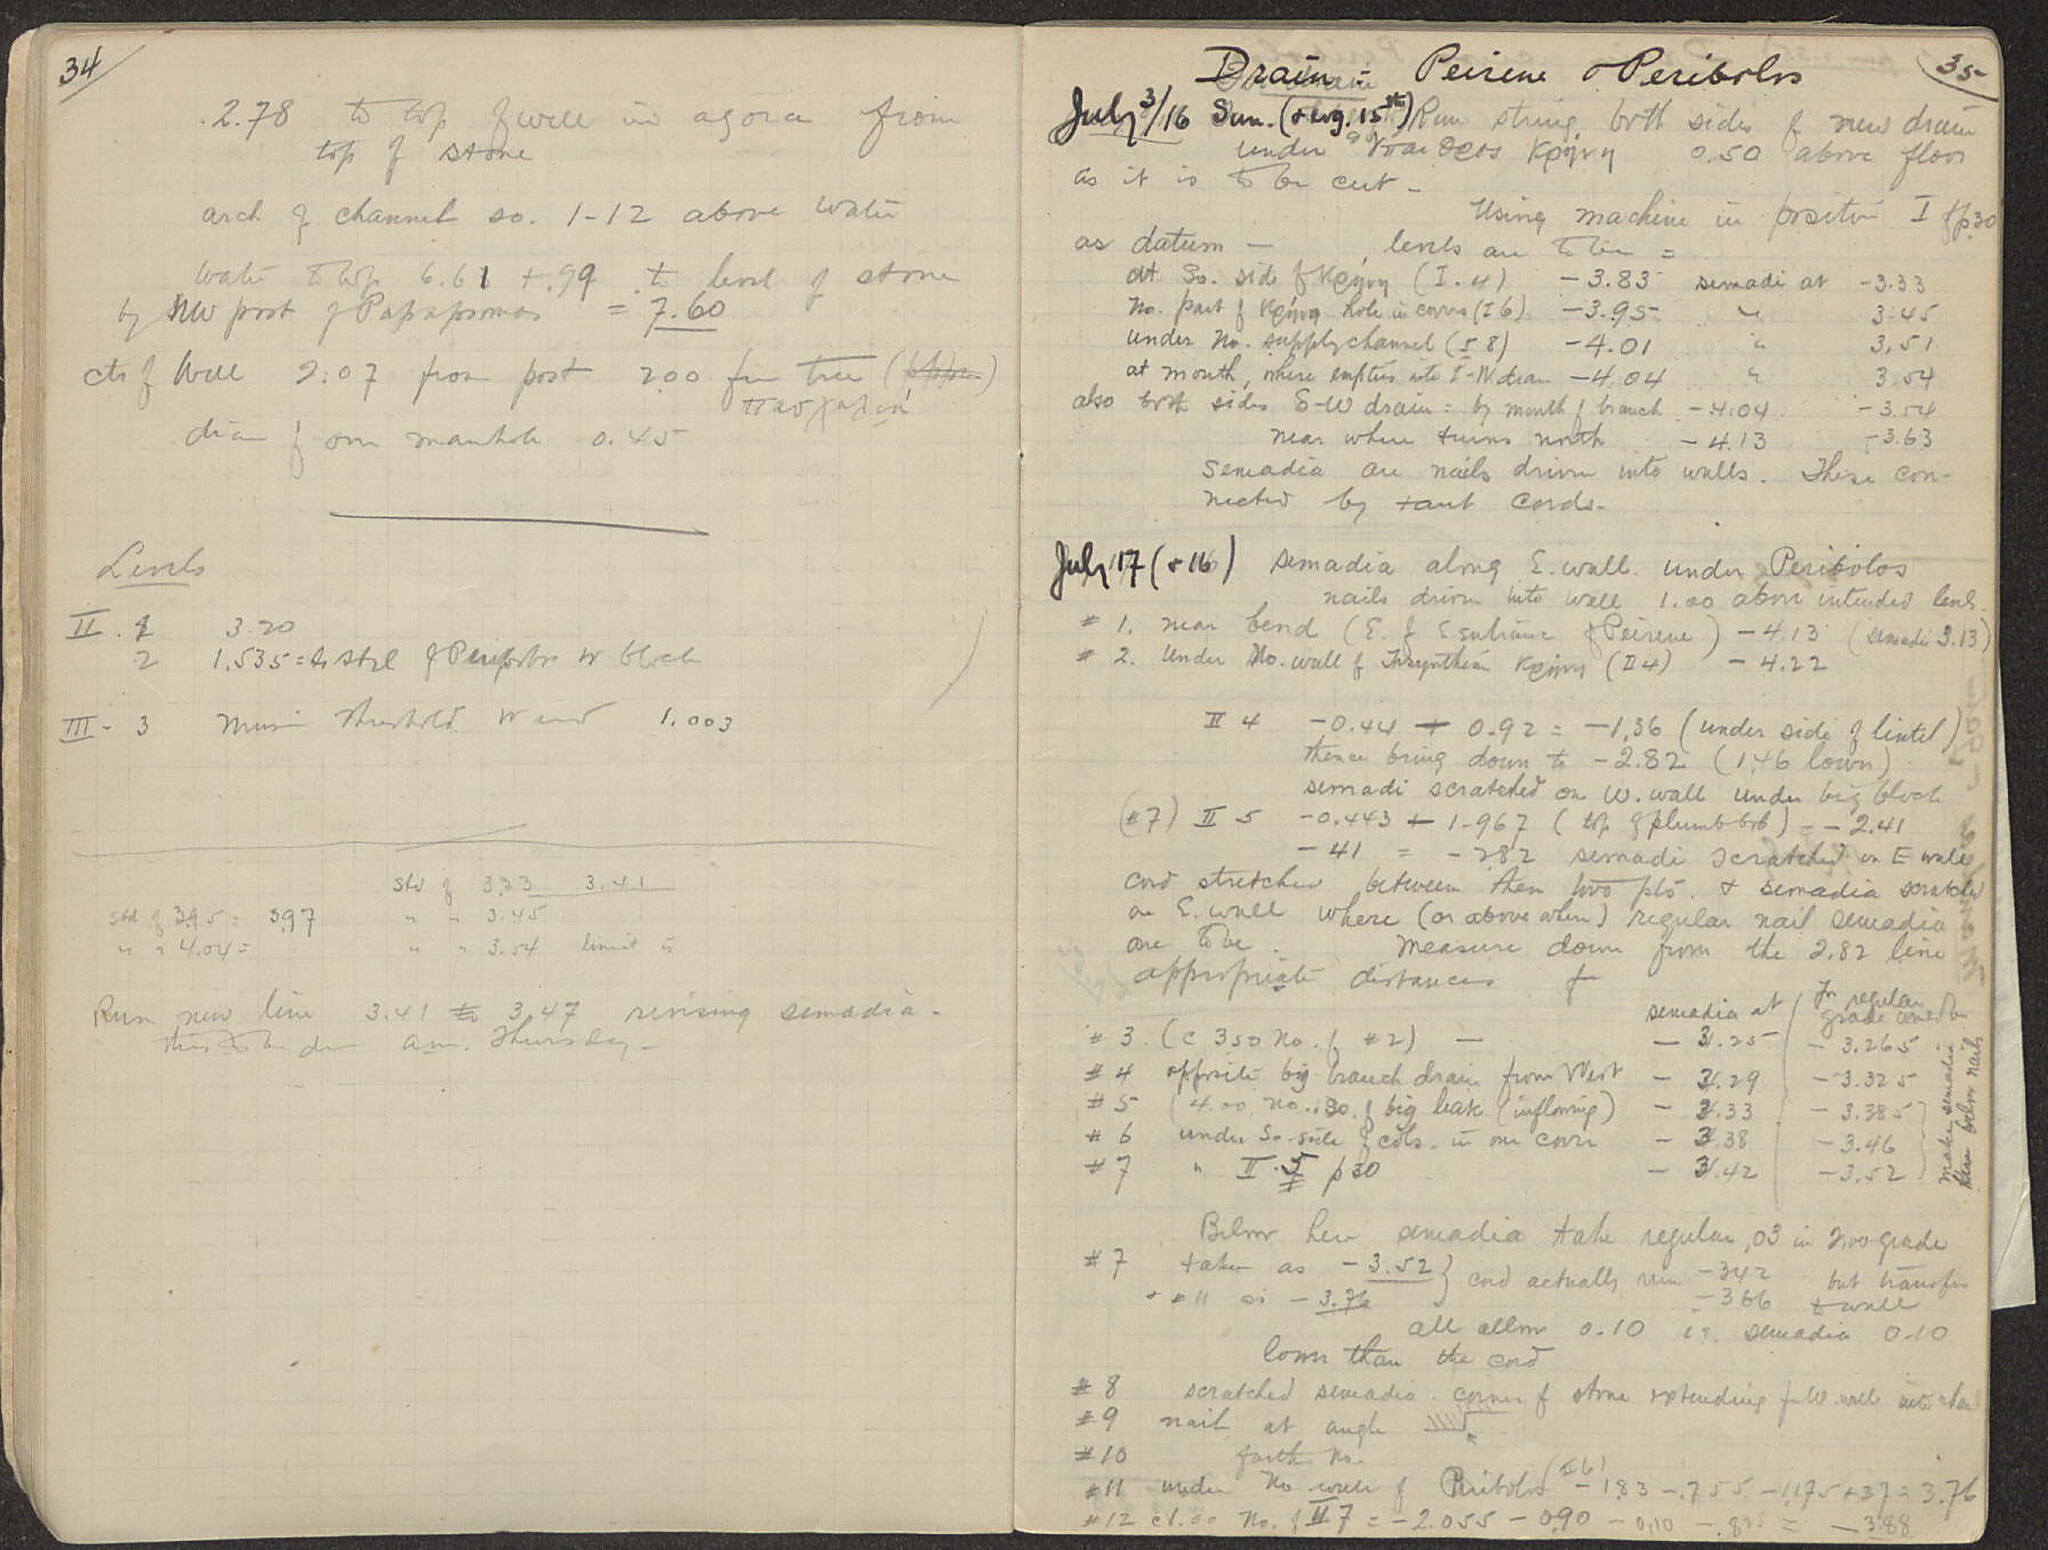 34
.2.78 to top of well in agora from
top of stone
arch of channel so. 1-12 above water
water to top 6.61 + .99 to level of stone
by NW post of = 7.60
ctr of Well 2.07 from post 200 fm tree
diam of our manhole 0.45
Levels
II . 1 3.20
2 1.535 = W block
III - 3 threshold W end 1.003
Std of 3.33 3.41
Std of 3.95 = 3.97 " " 3.45
" " 4.04 = " " 3.54 limit is
Run new line 3.41 to 3.47 revising semadia -
this to be Thursday -
35
Drain - Peirene & Peribolos
July 3/16 Sun. (+ Aug. 15th) Run string both sides of new drain
under κρήνη 0.50 above floor
as it is to be cut -
Using machine in position I of p.30
as datum - , levels are to be =
at So. side of κρήνη (I.4) -3.83 semadi at -3.33
No. part of κρήνη hole in (I 6) -3.95 " 3.45
under No. supply channel (I 8) -4.01 " 3.51
at mouth, where empties into drain -4.04 " 3.54
also both sides drain = by mouth of branch -4.04 -3.54
near where turns north -4.13 -3.63
semadia are nails driven into walls. These con-
nected by taut cords.
July 17 (+ 16) semadia along E. wall under Peribolos
nails driven into wall 1.00 above intended level.
# 1. near bend (E. of E entrance of Peirene) -4.13 (semadi 3.13)
# 2. Under No. wall of κρήνη (II 4) -4.22
II 4 -0.44 + 0.92 = -1.36 (under side of lintel)
thence bring down to -2.82 (1.46 lower)
semadi scratched on W. wall under big block
(#7) II 5 -0.443 + 1.967 (top of plumb bob) = -2.41
-41 = -282 semadi scratched on E wall
cord stretched between these two pts. & semadia scratched
on E. wall where (or above where) regular nail semadia
are to be. Measure down from the 2.82 line
appropriate distances
semadia at for regular
grade
# 3. (c 350 No. of #2) - - 3.25 - 3.265
# 4 opposite big branch drain from West - 3.29 - 3.325
# 5 (4.00 No. So. of big leak (inflowing) - 3.33 - 3.385
# 6 under So. side of cols. in our - 3.38 - 3.46
# 7 " II.5 p 30 - 3.42 - 3.52
make semadia
here below nails
Below here semadia take regular .03 in 2.00 grade
# 7 taken as - 3.52 } cord actually run -342 but transfer
+ #11 as - 3.76 -366 to wall
all allow 0.10 i.e. semadia 0.10
lower than the cord
# 8 scratched semadia. corner of stone extending W. wall into
# 9 nail at angle
#10 No.
#11 under No wall of Peribolos (II 6) -1.83 - .755 - 1.175 + 37 = 3.76
#12 No. of II 7 = -2.055 - 0.90 - 0.10 - .825 = - 3.88